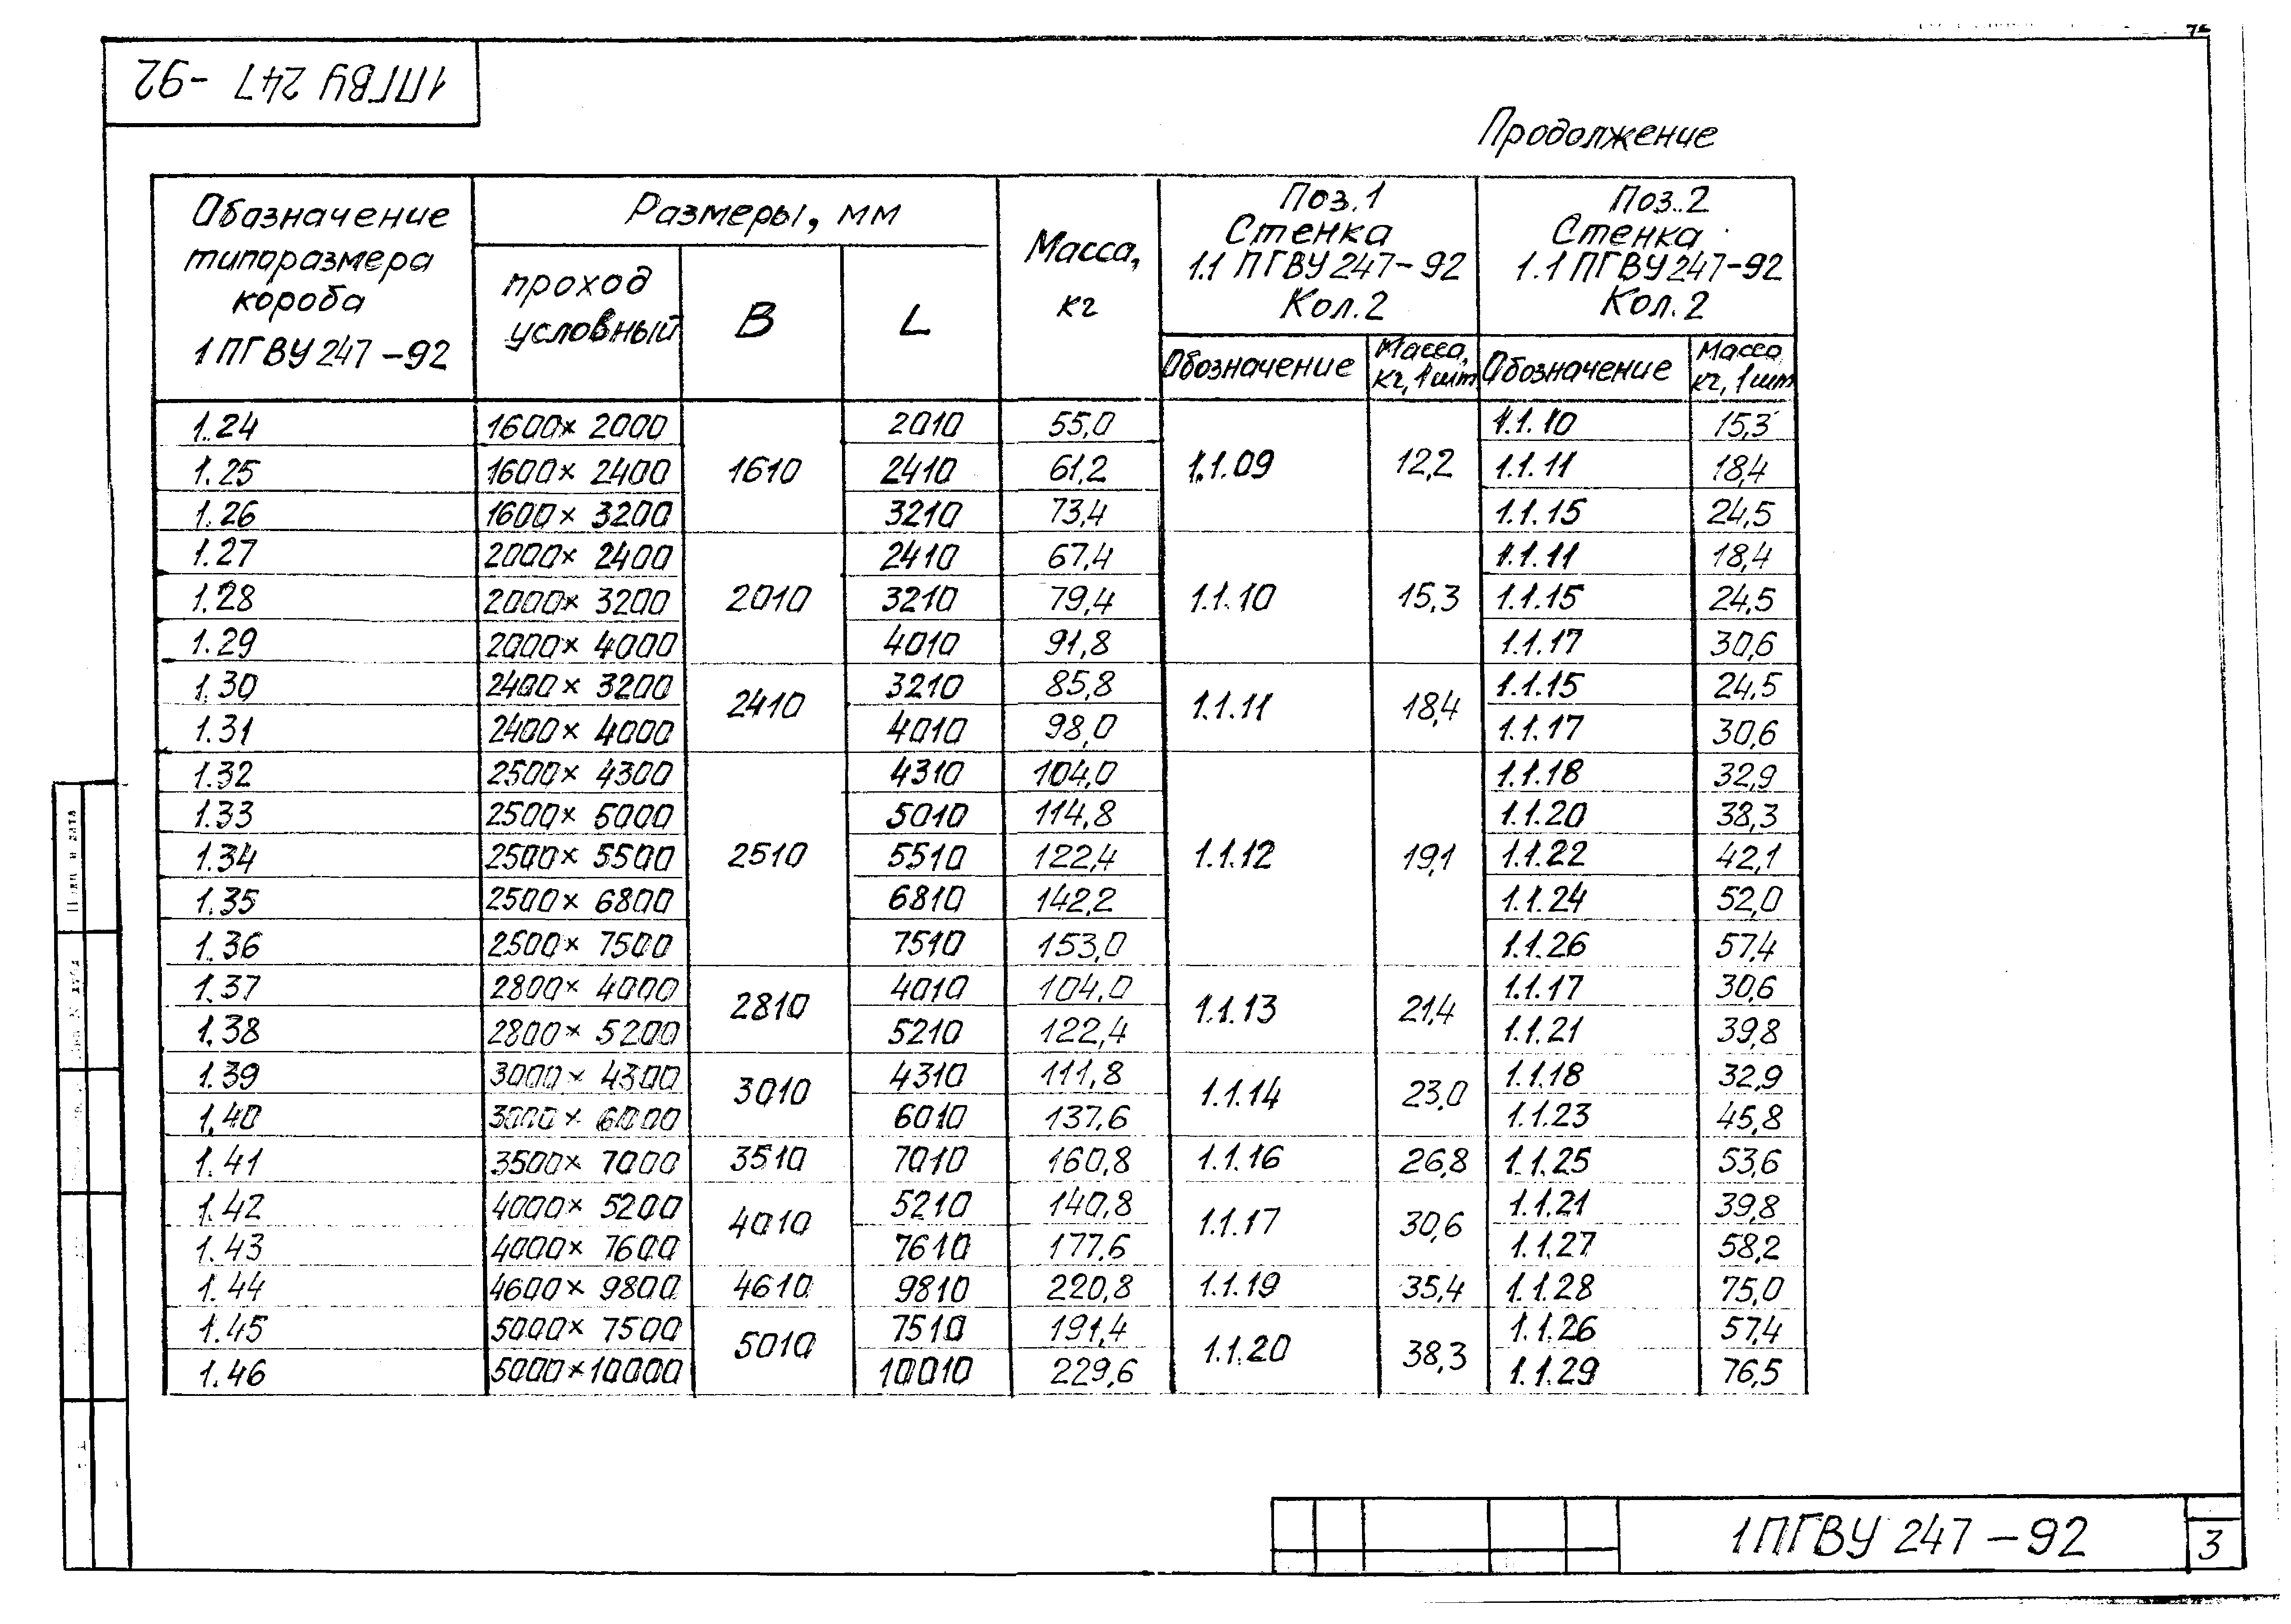 1ПГВУ 247 -92
Продолжение
Обозначение типоразмера короба 1ПГВУ 247-92
Размеры, мм
проход условный
B
L
Масса, кг
Поз.1 Стенка 1.1 ПГВУ 247-92 Кол.2
Поз.2 Стенка 1.1 ПГВУ 247-92 Кол.2
Обозначение
Масса, кг, 1шт
Обозначение
Масса кг, 1шт
1.24 1600×2000 1610 2010 55,0 1.1.09 12,2 1.1.10 15,3
1.25 1600×2400 2410 61,2 1.1.11 18,4
1.26 1600×3200 3210 73,4 1.1.15 24,5
1.27 2000×2400 2010 2410 67,4 1.1.10 15,3 1.1.11 18,4
1.28 2000×3200 3210 79,4 1.1.15 24,5
1.29 2000×4000 4010 91,8 1.1.17 30,6
1.30 2400×3200 2410 3210 85,8 1.1.11 18,4 1.1.15 24,5
1.31 2400×4000 4010 98,0 1.1.17 30,6
1.32 2500×4300 2510 4310 104,0 1.1.12 19,1 1.1.18 32,9
1.33 2500×5000 5010 114,8 1.1.20 38,3
1.34 2500×5500 5510 122,4 1.1.22 42,1
1.35 2500×6800 6810 142,2 1.1.24 52,0
1.36 2500×7500 7510 153,0 1.1.26 57,4
1.37 2800×4000 2810 4010 104,0 1.1.13 21,4 1.1.17 30,6
1.38 2800×5200 5210 122,4 1.1.21 39,8
1.39 3000×4300 3010 4310 111,8 1.1.14 23,0 1.1.18 32,9
1.40 3000×6000 6010 137,6 1.1.23 45,8
1.41 3500×7000 3510 7010 160,8 1.1.16 26,8 1.1.25 53,6
1.42 4000×5200 4010 5210 140,8 1.1.17 30,6 1.1.21 39,8
1.43 4000×7600 7610 177,6 1.1.27 58,2
1.44 4600×9800 4610 9810 220,8 1.1.19 35,4 1.1.28 75,0
1.45 5000×7500 5010 7510 191,4 1.1.20 38,3 1.1.26 57,4
1.46 5000×10000 10010 229,6 1.1.29 76,5
1ПГВУ 247-92
3